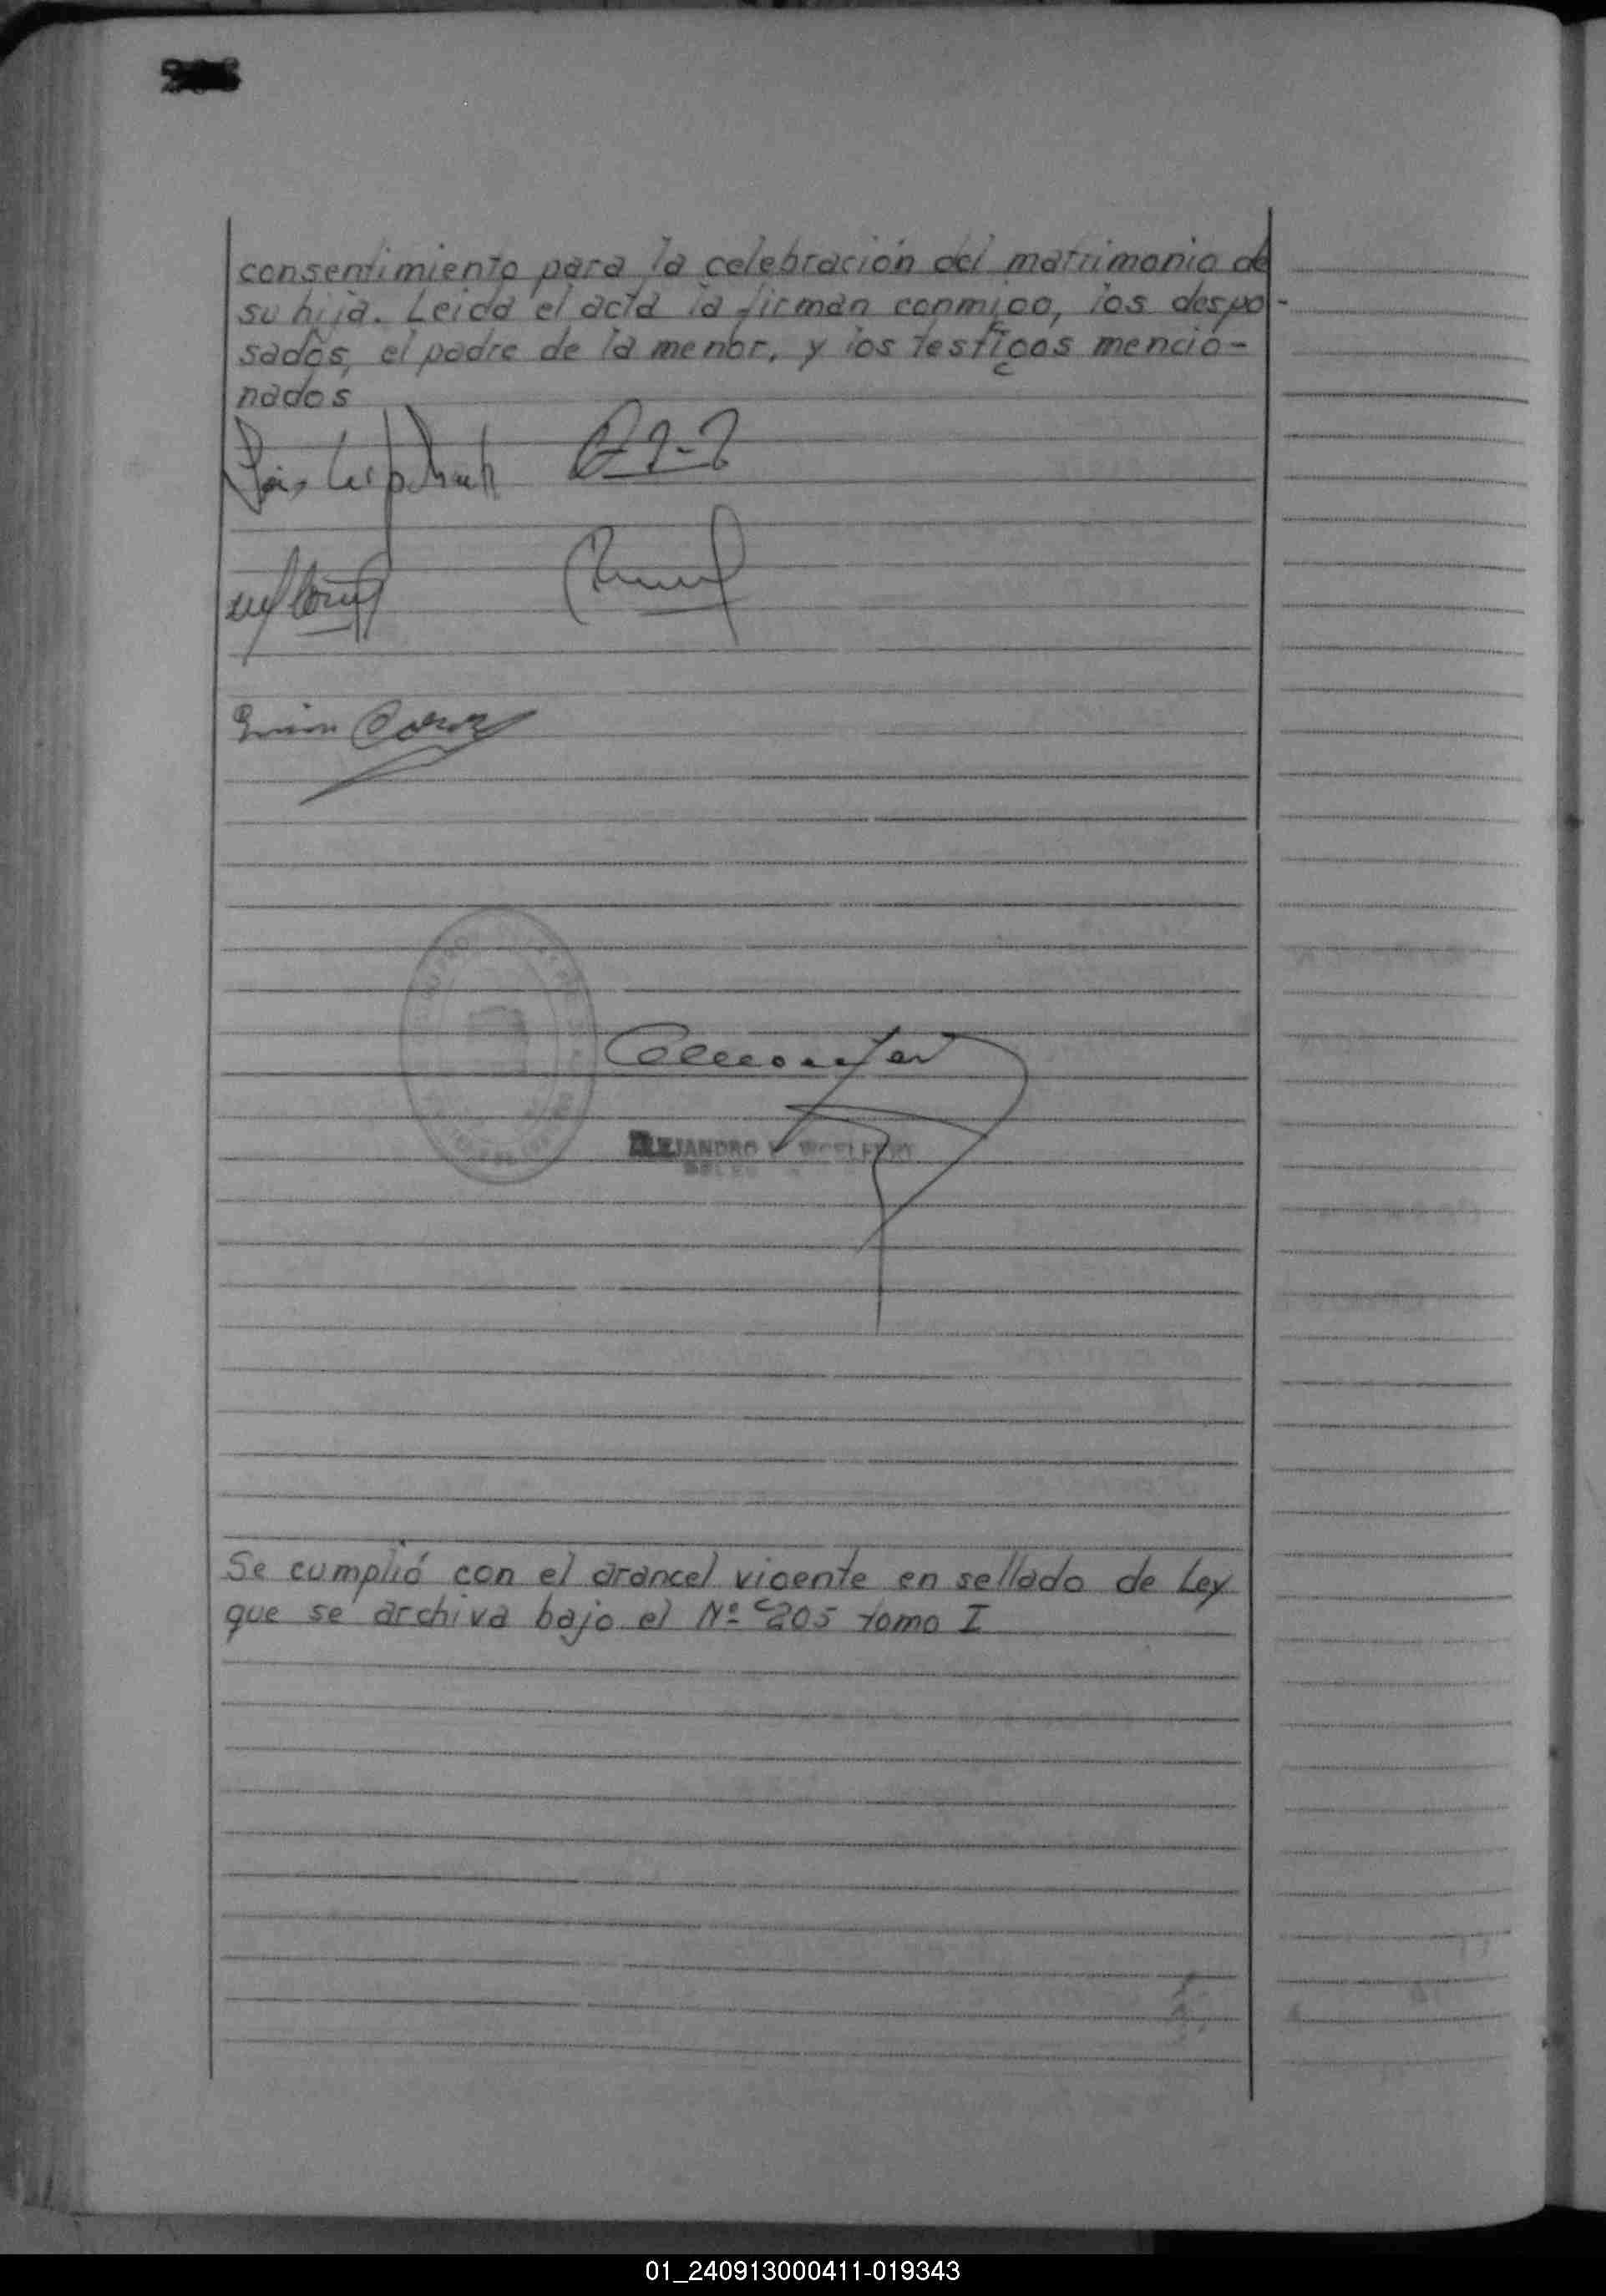 consentimiento para la celebración del matrimonio de
su hija. Leida el acta la firman conmigo, los despo-
sados, el padre de la menor, y los testigos mencio-
nados
ALEJANDRO
Se cumplió con el arancel vigente en sellado de Ley
que se archiva bajo el Nº 205 tomo I
01_240913000411-019343